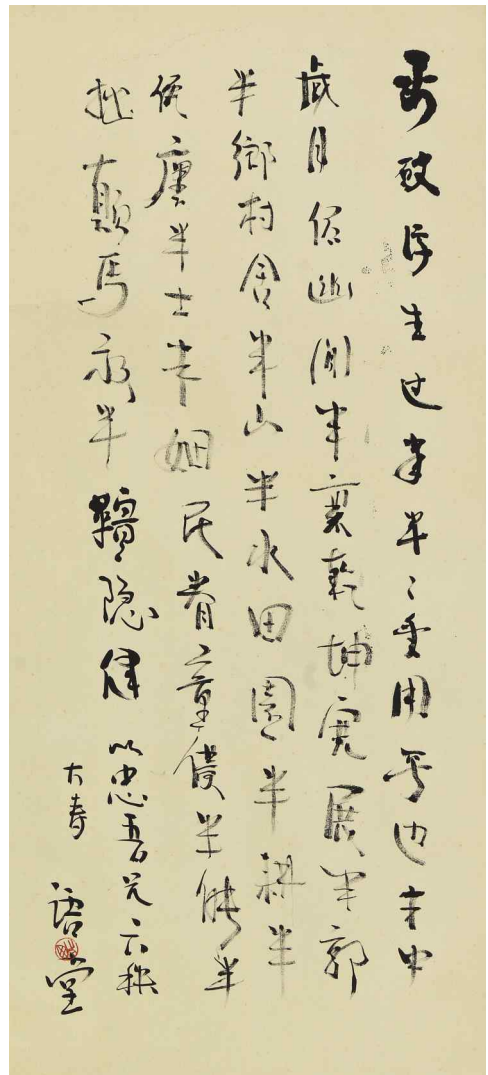 看破浮生过半半之受用无边半中
歲月侭幽閒半裏乾坤寬展半郭
半鄉村舍半山半水田園半耕半
廛半士半姻民眷童僕半能半
拙 半 隐 以忠吾兄六秩
大寿
语堂